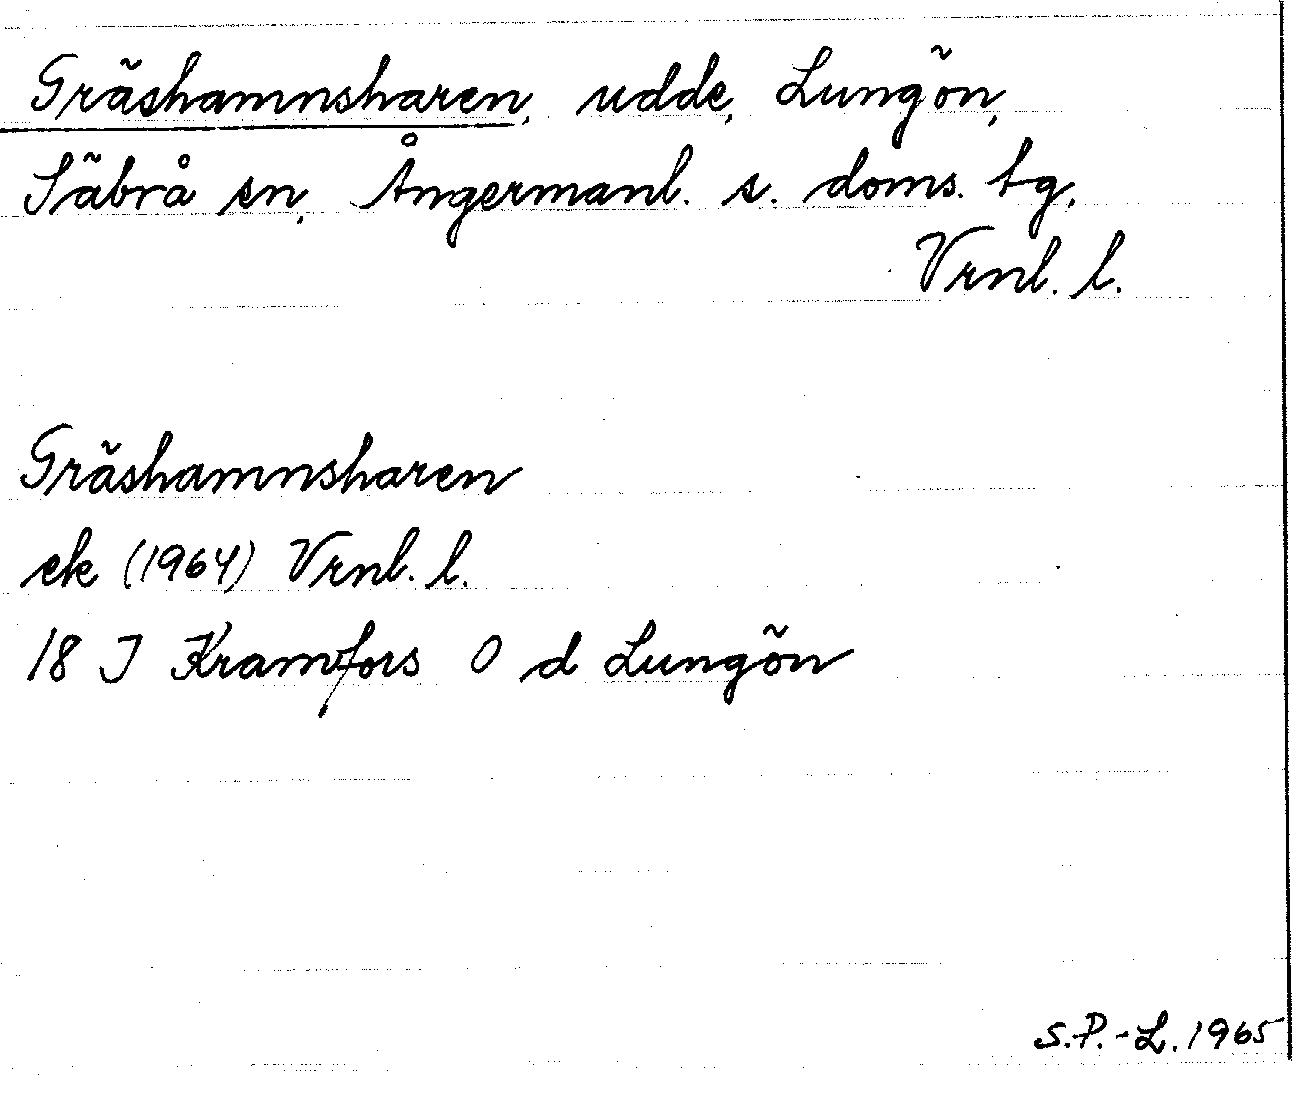 Gräshamnsharen, udde, Lungön,
Säbrå sn, Ångermanl. s. doms. tg,
Vrnl. l.
Gräshamnsharen
ek (1964) Vrnl. l.
18 I Kramfors O d Lungön
S.P.-L. 1965